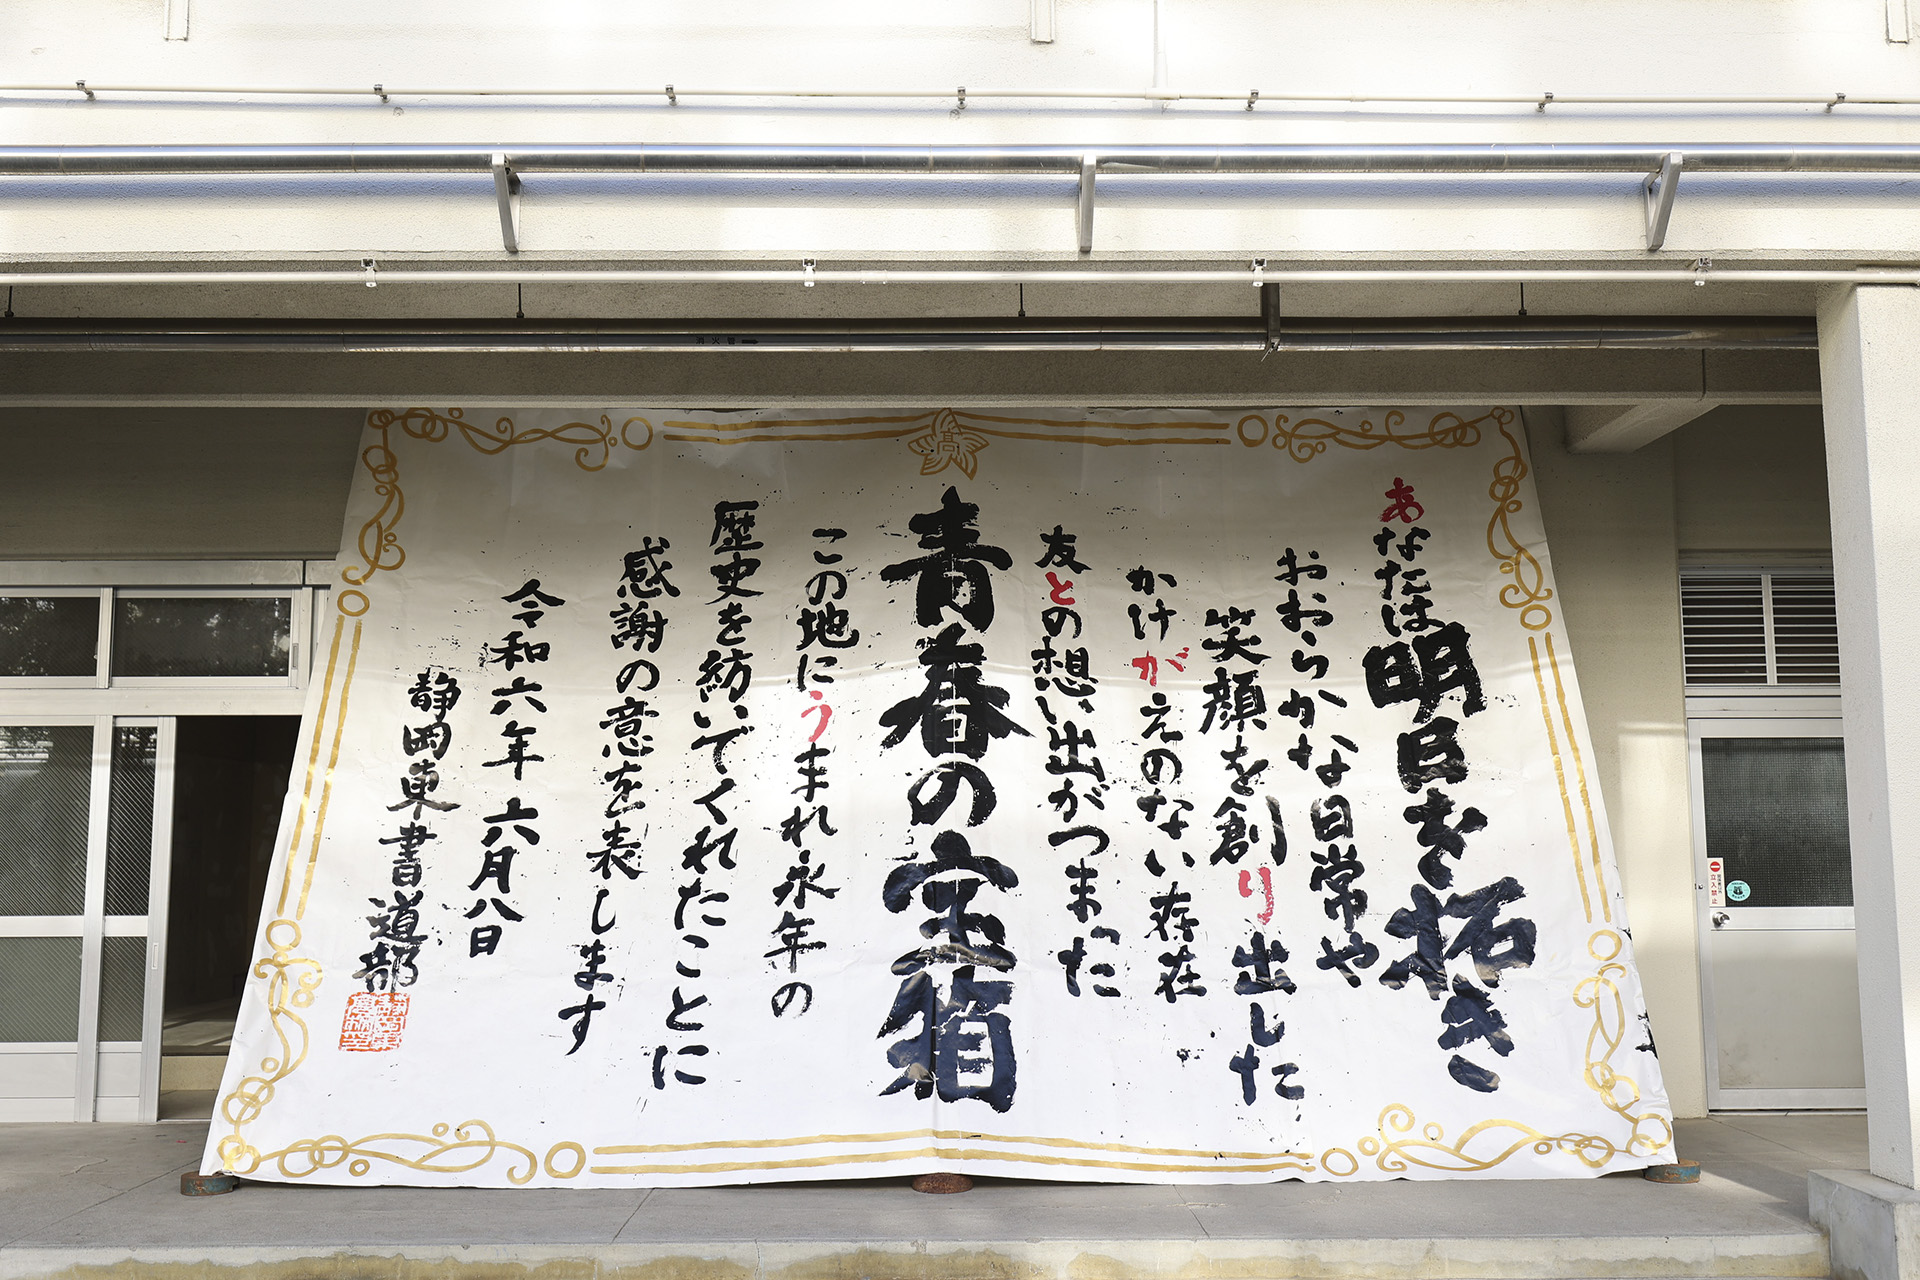 あなたは明日を拓き
おおらかな日常や
笑顔を創り出した
かけがえのない存在
友との想い出がつまった
青春の宝箱
この地にうまれ永年の
歴史を紡いでくれたことに
感謝の意を表します
令和六年六月八日
静岡東書道部
高
消火管
立入禁止